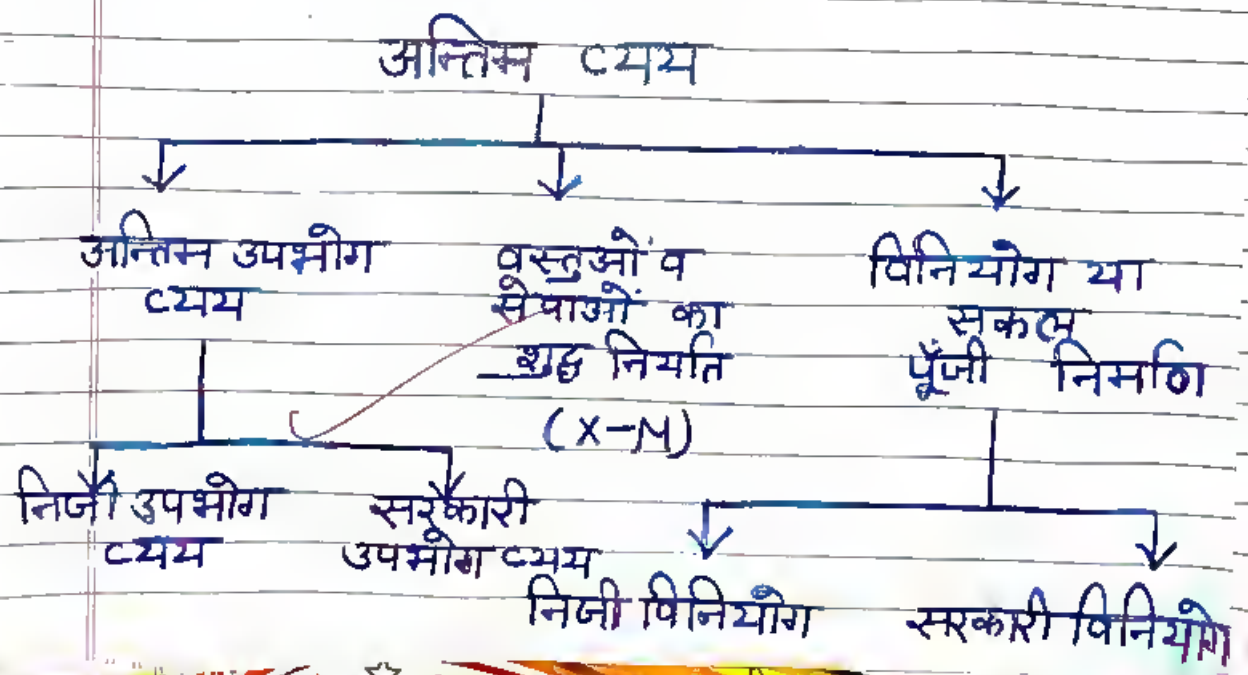 अन्तिम व्यय
अन्तिम उपभोग
व्यय
वस्तुओं व
सेवाओं का
शुद्ध निर्यात
(X-M)
विनियोग या
सकल
पूँजी निर्माण
निजी उपभोग
व्यय
सरकारी
उपभोग व्यय
निजी विनियोग
सरकारी विनियोग